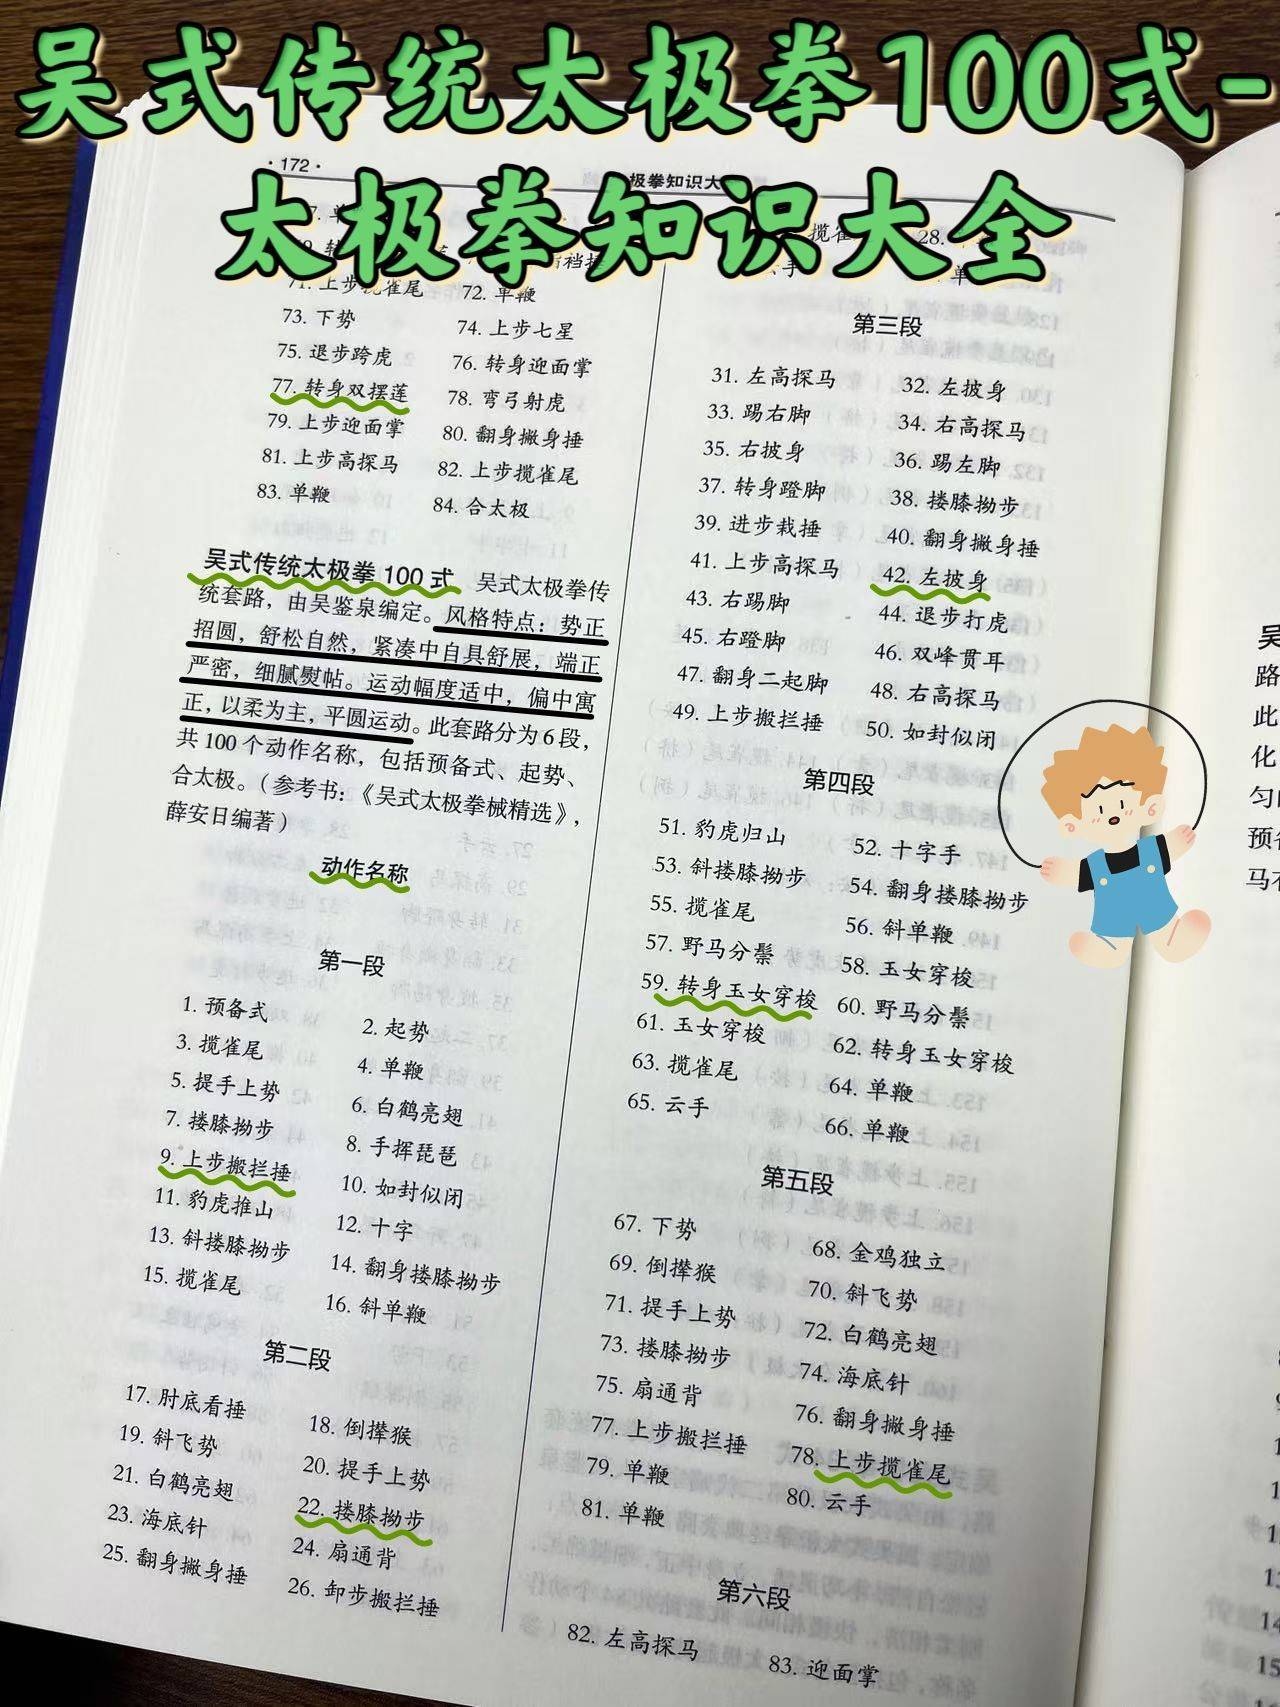 吴式传统太极拳100式-
太极拳知识大全
·172·
极拳知识大
71. 上步揽雀尾 72. 单鞭
73. 下势 74. 上步七星
75. 退步跨虎 76. 转身迎面掌
77. 转身双摆莲 78. 弯弓射虎
79. 上步迎面掌 80. 翻身撇身捶
81. 上步高探马 82. 上步揽雀尾
83. 单鞭 84. 合太极
吴式传统太极拳 100 式 吴式太极拳传
统套路，由吴鉴泉编定。风格特点：势正
招圆，舒松自然，紧凑中自具舒展，端正
严密，细腻熨帖。运动幅度适中，偏中寓
正，以柔为主，平圆运动。此套路分为 6 段，
共 100 个动作名称，包括预备式、起势、
合太极。（参考书：《吴式太极拳械精选》，
薛安日编著）
动作名称
第一段
1. 预备式 2. 起势
3. 揽雀尾 4. 单鞭
5. 提手上势 6. 白鹤亮翅
7. 搂膝拗步 8. 手挥琵琶
9. 上步搬拦捶 10. 如封似闭
11. 豹虎推山 12. 十字
13. 斜搂膝拗步 14. 翻身搂膝拗步
15. 揽雀尾 16. 斜单鞭
第二段
17. 肘底看捶 18. 倒撵猴
19. 斜飞势 20. 提手上势
21. 白鹤亮翅 22. 搂膝拗步
23. 海底针 24. 扇通背
25. 翻身撇身捶 26. 卸步搬拦捶
揽雀 28.
第三段
31. 左高探马 32. 左披身
33. 踢右脚 34. 右高探马
35. 右披身 36. 踢左脚
37. 转身蹬脚 38. 搂膝拗步
39. 进步栽捶 40. 翻身撇身捶
41. 上步高探马 42. 左披身
43. 右踢脚 44. 退步打虎
45. 右蹬脚 46. 双峰贯耳
47. 翻身二起脚 48. 右高探马
49. 上步搬拦捶 50. 如封似闭
第四段
51. 豹虎归山 52. 十字手
53. 斜搂膝拗步 54. 翻身搂膝拗步
55. 揽雀尾 56. 斜单鞭
57. 野马分鬃 58. 玉女穿梭
59. 转身玉女穿梭 60. 野马分鬃
61. 玉女穿梭 62. 转身玉女穿梭
63. 揽雀尾 64. 单鞭
65. 云手 66. 单鞭
第五段
67. 下势 68. 金鸡独立
69. 倒撵猴 70. 斜飞势
71. 提手上势 72. 白鹤亮翅
73. 搂膝拗步 74. 海底针
75. 扇通背 76. 翻身撇身捶
77. 上步搬拦捶 78. 上步揽雀尾
79. 单鞭 80. 云手
81. 单鞭
第六段
82. 左高探马 83. 迎面掌
吴
路
此
化
匀
预备
马